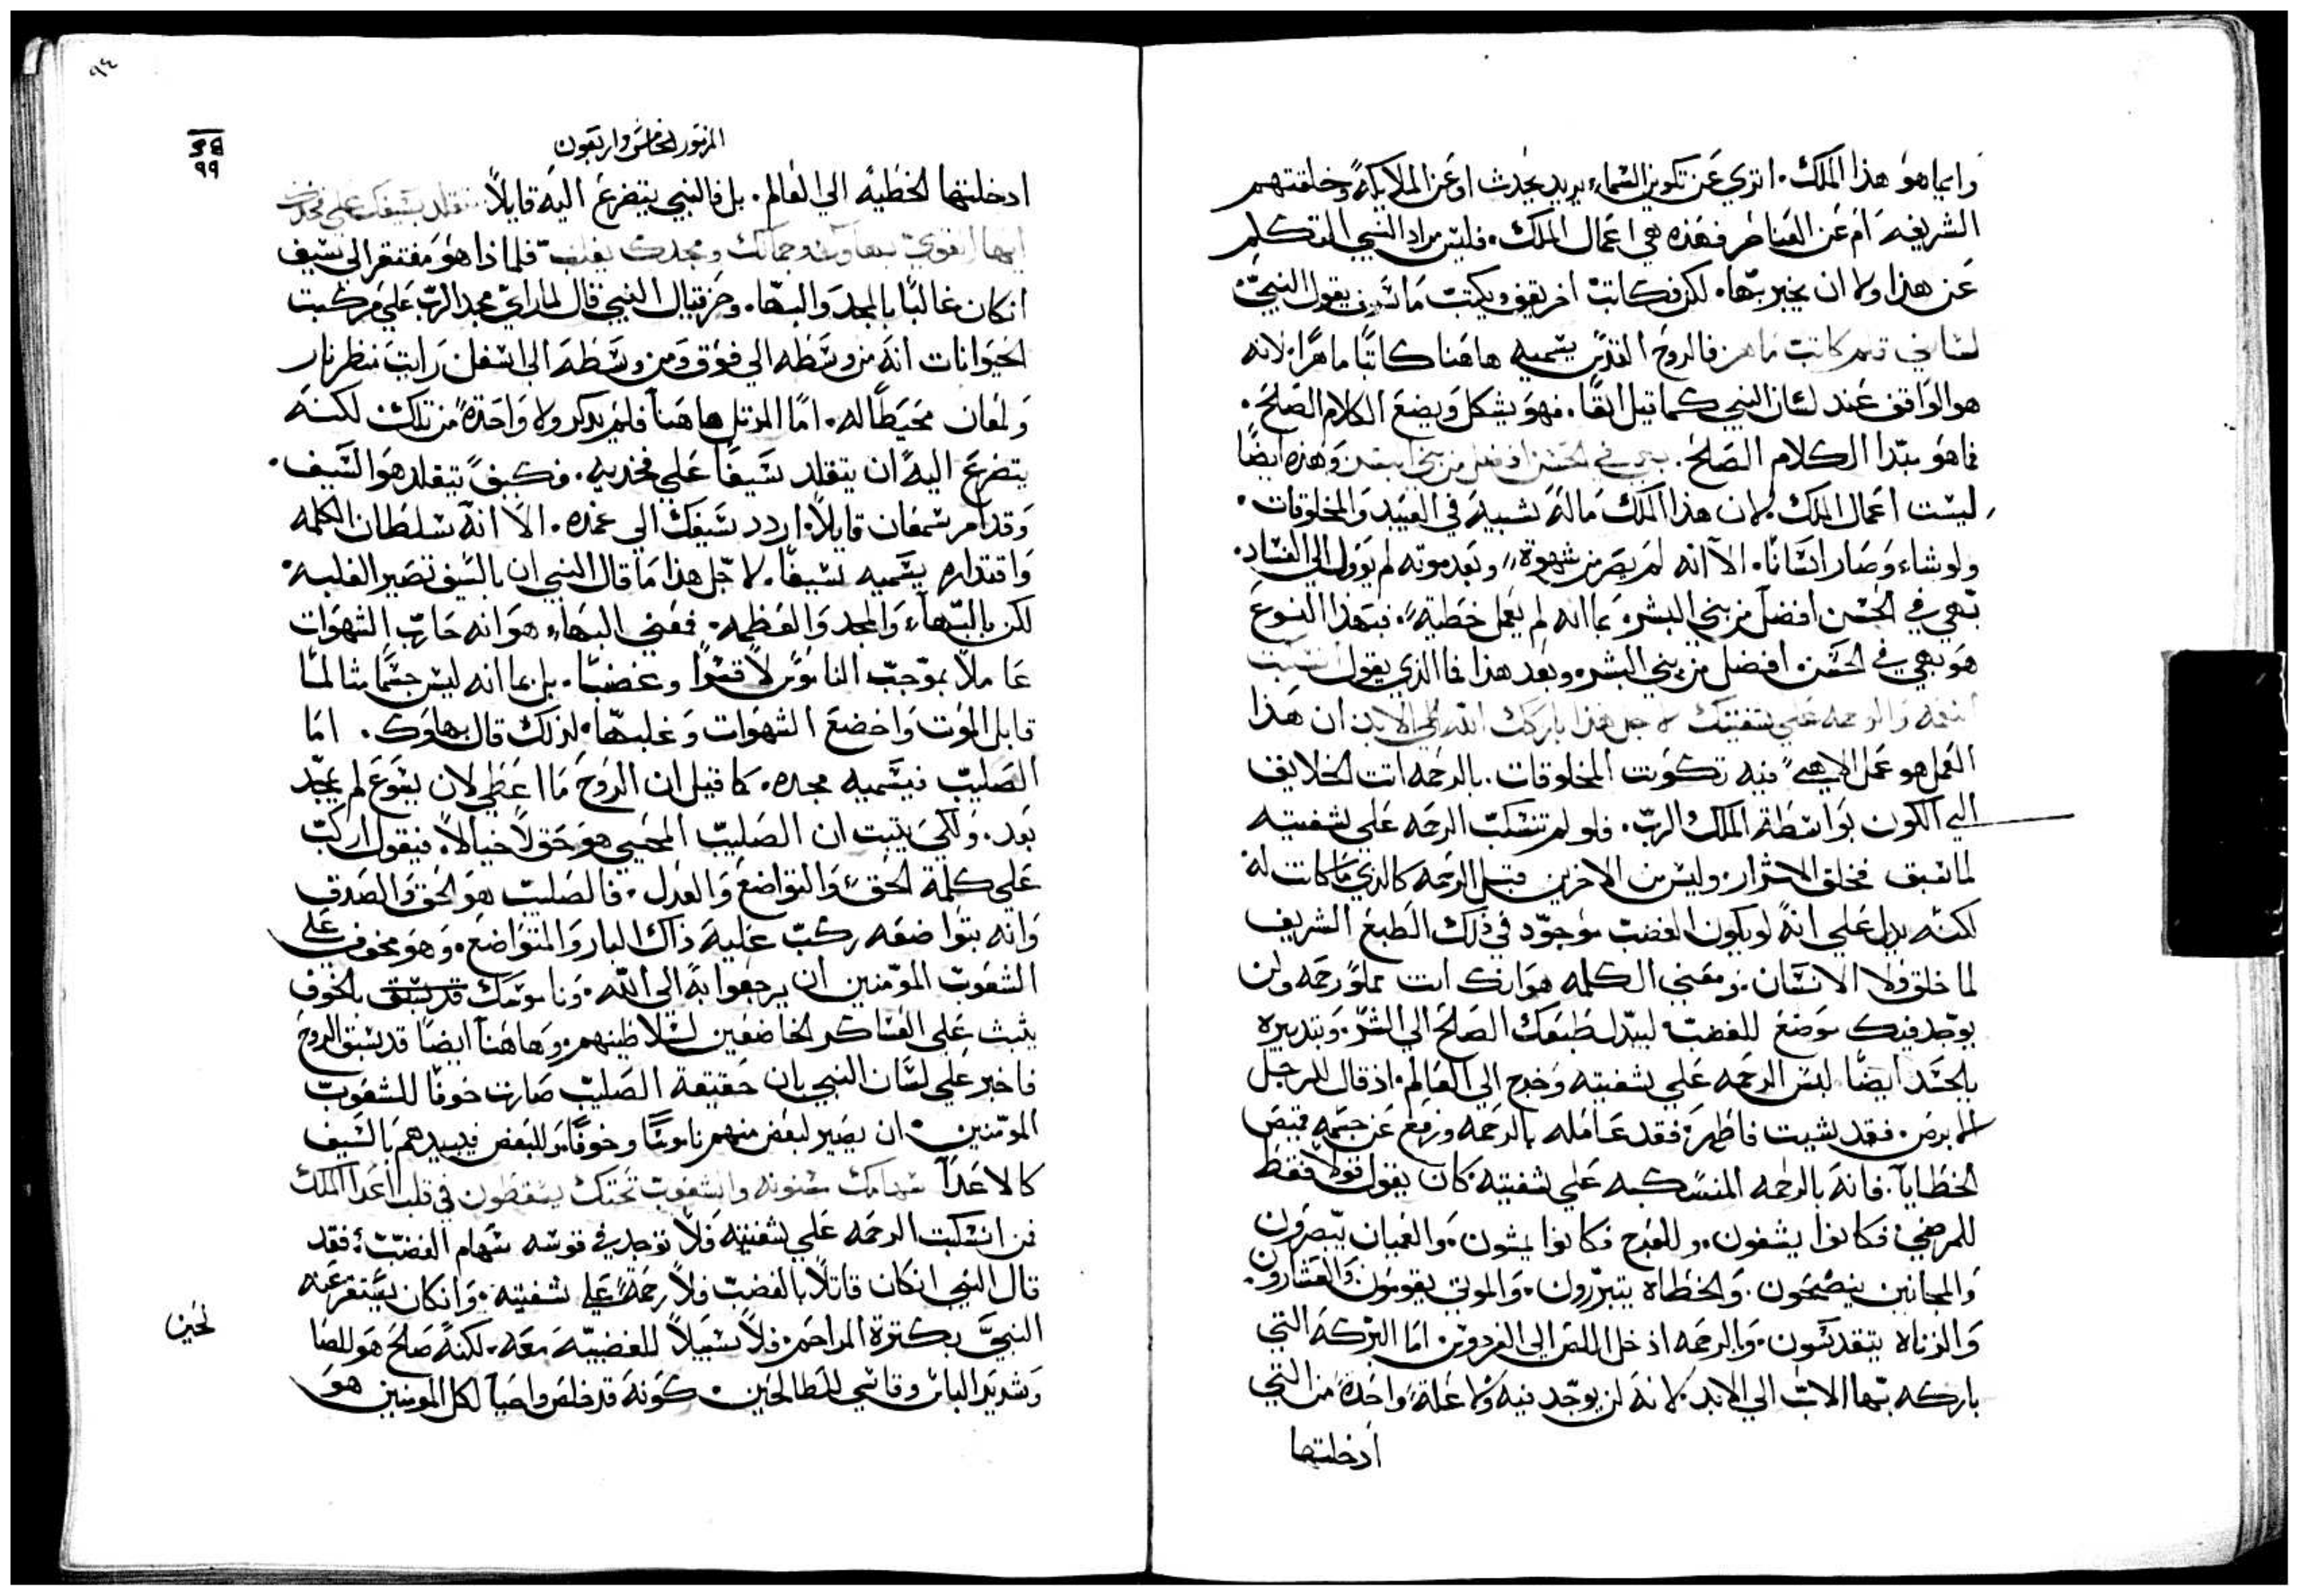 وايما هو هذا الملك. اترى عن تكوين السماء يريد يحدث او عن الملايكة وخلقتهم
الشريفه ام عن العناصر فهذه هي اعمال الملك. فليس مراد النبي التكلم
عن هذا ولا ان يخبر بها. لكن فكاتب اخر يقف ويكتب ما يقول النبي
لساني قلم كاتب ماهر فالروح القدس يسميه هاهنا كاتبًا ماهرًا. لانه
هو الواقف عند لسان النبي كما قيل انفًا. فهو يشكل ويضع الكلام الصالح.
فما هو مبدا الكلام الصالح. بهي في الحسن افضل من بني البشر وهذه ايضًا
ليست اعمال الملك. لان هذا الملك ماله شبيه في العبيد والمخلوقات.
ولو شاء وصار انسانًا. الا انه لم يصر من شهوة. وبعد موته لم يوول الي الفساد.
بهي في الحسن افضل من بني البشر. بما انه لم يعمل خطية. فبهذا النوع
هو بهي في الحسن. افضل من بني البشر. وبعد هذا فما الذي يقول انسكبت
النعمه والرحمه علي شفتيك لاجل هذا باركك الله الي الابد ان هذا
العمل هو عمل الاهي فيه تكونت المخلوقات. بالرحمه اتت الخلايق
الي الكون بواسطة الملك الرب. فلو لم تنسكب الرحمه علي شفتيه
لما سبق فخلق الاشرار. وليس من الاخرين قبل الرحمه كالذي ما كانت له
لكنه يدل علي انه لو يكون الغضب موجود في ذلك الطبع الشريف
لما خلق ولا الانسان. ومعني الكلمه هو انك انت مملو رحمه ولن
يوجد فيك موضع للغضب ليبدل طبعك الصالح الي الشر. وبتدبيره
بالجسد ايضًا لبس الرحمه علي شفتيه وخرج الي العالم. اذ قال للرجل
الابرص. فقد شيت فاطهر. فقد عامله بالرحمه ورفع عن جسمه قبض
الخطايا. فانه بالرحمه المنسكبه علي شفتيه كان يقول قولا فقط
للمرضي فكانوا يشفون. وللعرج فكانوا يمشون. والعميان يبصرون
والمجانين ينصحون. والخطاه يتبررون. والموتي يقومون. والعشارون
والزناه يتقدسون. وبالرحمه ادخل اللص الي الفردوس. اما البركه التي
باركه بها الاب الي الابد. لانه لن يوجد فيه ولا علة واحدة من التي
ادخلتها
٩٤
٩٩
المزمور الخامس واربعون
ادخلتها الخطيه الي العالم. بل فالنبي يتضرع اليه قايلاً تتقلد بسيفك علي فخذك
ايها القوي بهاوك وجمالك ومجدك يغلب فلماذا هو مفتقر الي سيف
انكان غالبًا بالمجد والبها. وحزقيال النبي قال لما راي مجد الرب علي مركبت
الحيوانات انه من وسطه الي فوق ومن وسطه الي اسفل رايت منظر نار
ولمعان محيطًا له. اما المرتل هاهنا فلم يذكر ولا واحدة من تلك لكنه
يتضرع اليه ان يتقلد سيفًا علي فخذيه. فكيف يتقلد هو السيف.
وقد امر سمعان قايلاً. اردد سيفك الي غمده. الا انه سلطان الكلمه
واقتداره يسميه سيفًا. لاجل هذا ما قال النبي ان بالسيف تصير الغلبه.
لكن بالبهاء والمجد والعظمه. فمعني البهاء هو انه حارب الشهوات
عاملاً بموجب الناموس لا قسرًا وغضبًا. بل بما انه لبس جسمًا متالمًا
قابل الموت واخضع الشهوات وغلبها. لذلك قال بهاوك. اما
الصليب فيسميه مجده. كما قيل ان الروح ما اعطي لان يسوع لم يمجد
بعد. ولكي يثبت ان الصليب المحيي هو حق لا خيالاً. فيقول اركب
علي كلمة الحق والتواضع والعدل. فالصليب هو الحق والصدق
وانه بتواضعه ركب عليه ذاك البار والمتواضع. وهو مخوف علي
الشعوب المومنين ان يرجعوا به الي الله. وناموسك قد يسبق بالخوف
يثبت علي العساكر الخاضعين لسلاطينهم. وهاهنا ايضًا قد سبق الروح
فاخبر علي لسان النبي بان حقيقة الصليب صارت خوفًا للشعوب
المومنين. ان يصير لبعض منهم ناموسًا وخوفًا. وللبعض فيبيدهم بالسيف
كالاعدا سهامك مسنونه والشعوب تحتك يسقطون في قلب اعدا الملك
فمن انسكبت الرحمه علي شفتيه فلا توجد في قوسه سهام الغضب. فقد
قال النبي انكان قاتلاً بالغضب فلا رحمة علي شفتيه. وانكان يستقر عنه
النبي بكثرة المراحم. فلا سبيلاً للغضبيه معه. لكنه صالح هو للصا
لحين
وشديد الباس وقاسي للطالحين. كونه قد خلص واحيا لكل المومنين هو